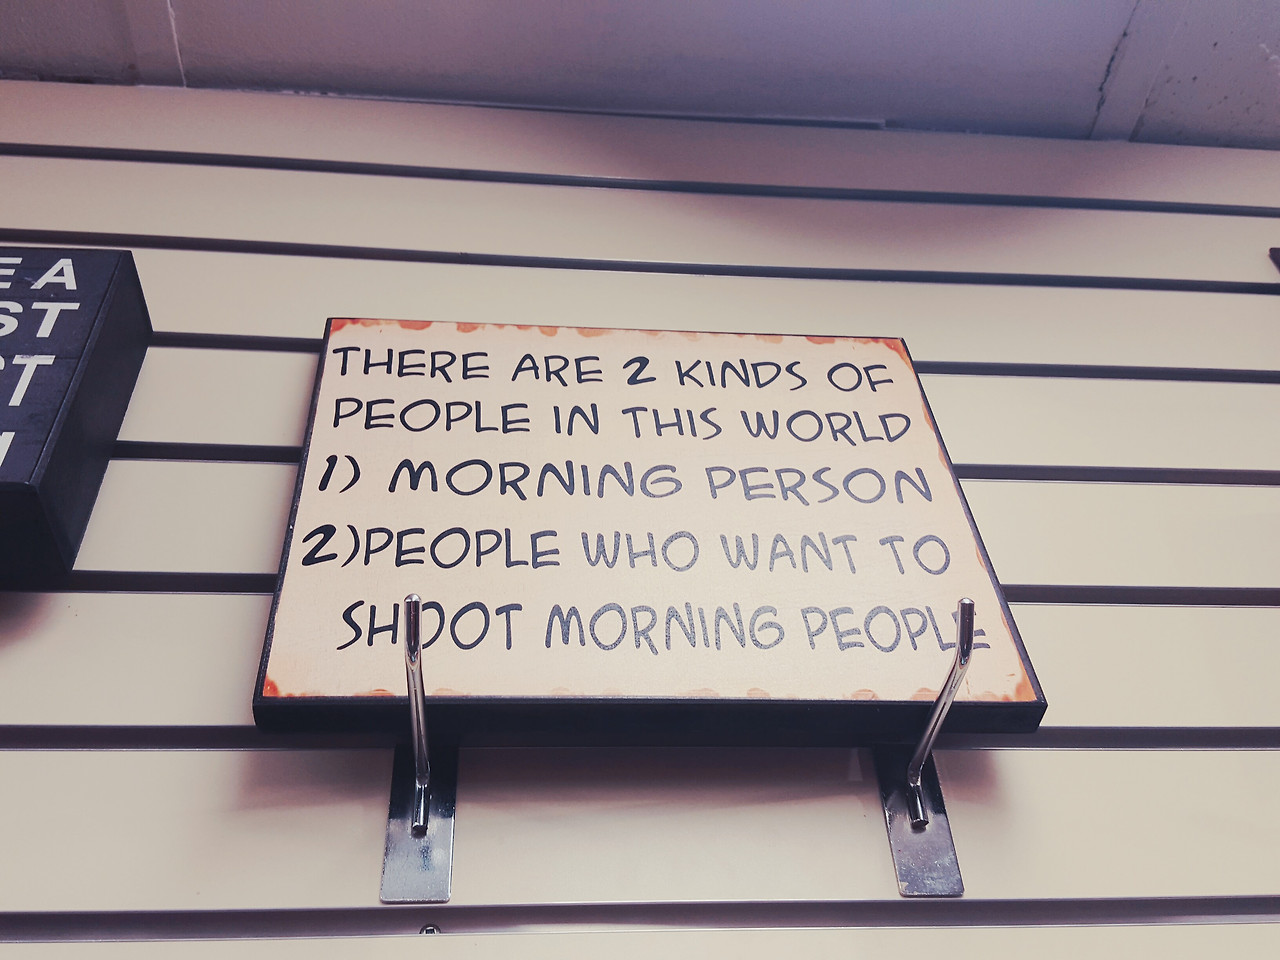 EA
ST
CT
THERE ARE 2 KINDS OF
PEOPLE IN THIS WORLD
1) MORNING PERSON
2)PEOPLE WHO WANT TO
SHOOT MORNING PEOPLE